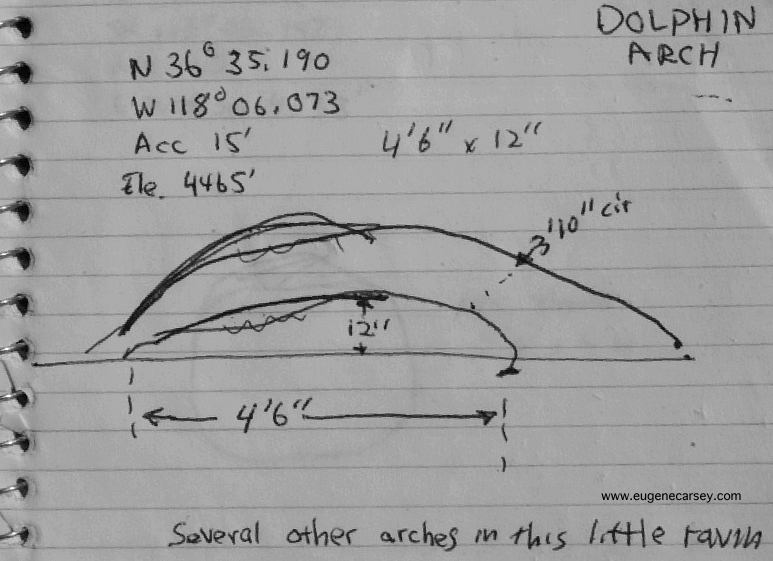 DOLPHIN
ARCH
N 36° 35.190
W 118° 06.073
Acc 15' 4'6" x 12"
Ele. 4465'
3'10" cir
12"
4'6"
www.eugenecarsey.com
Several other arches in this little ravin